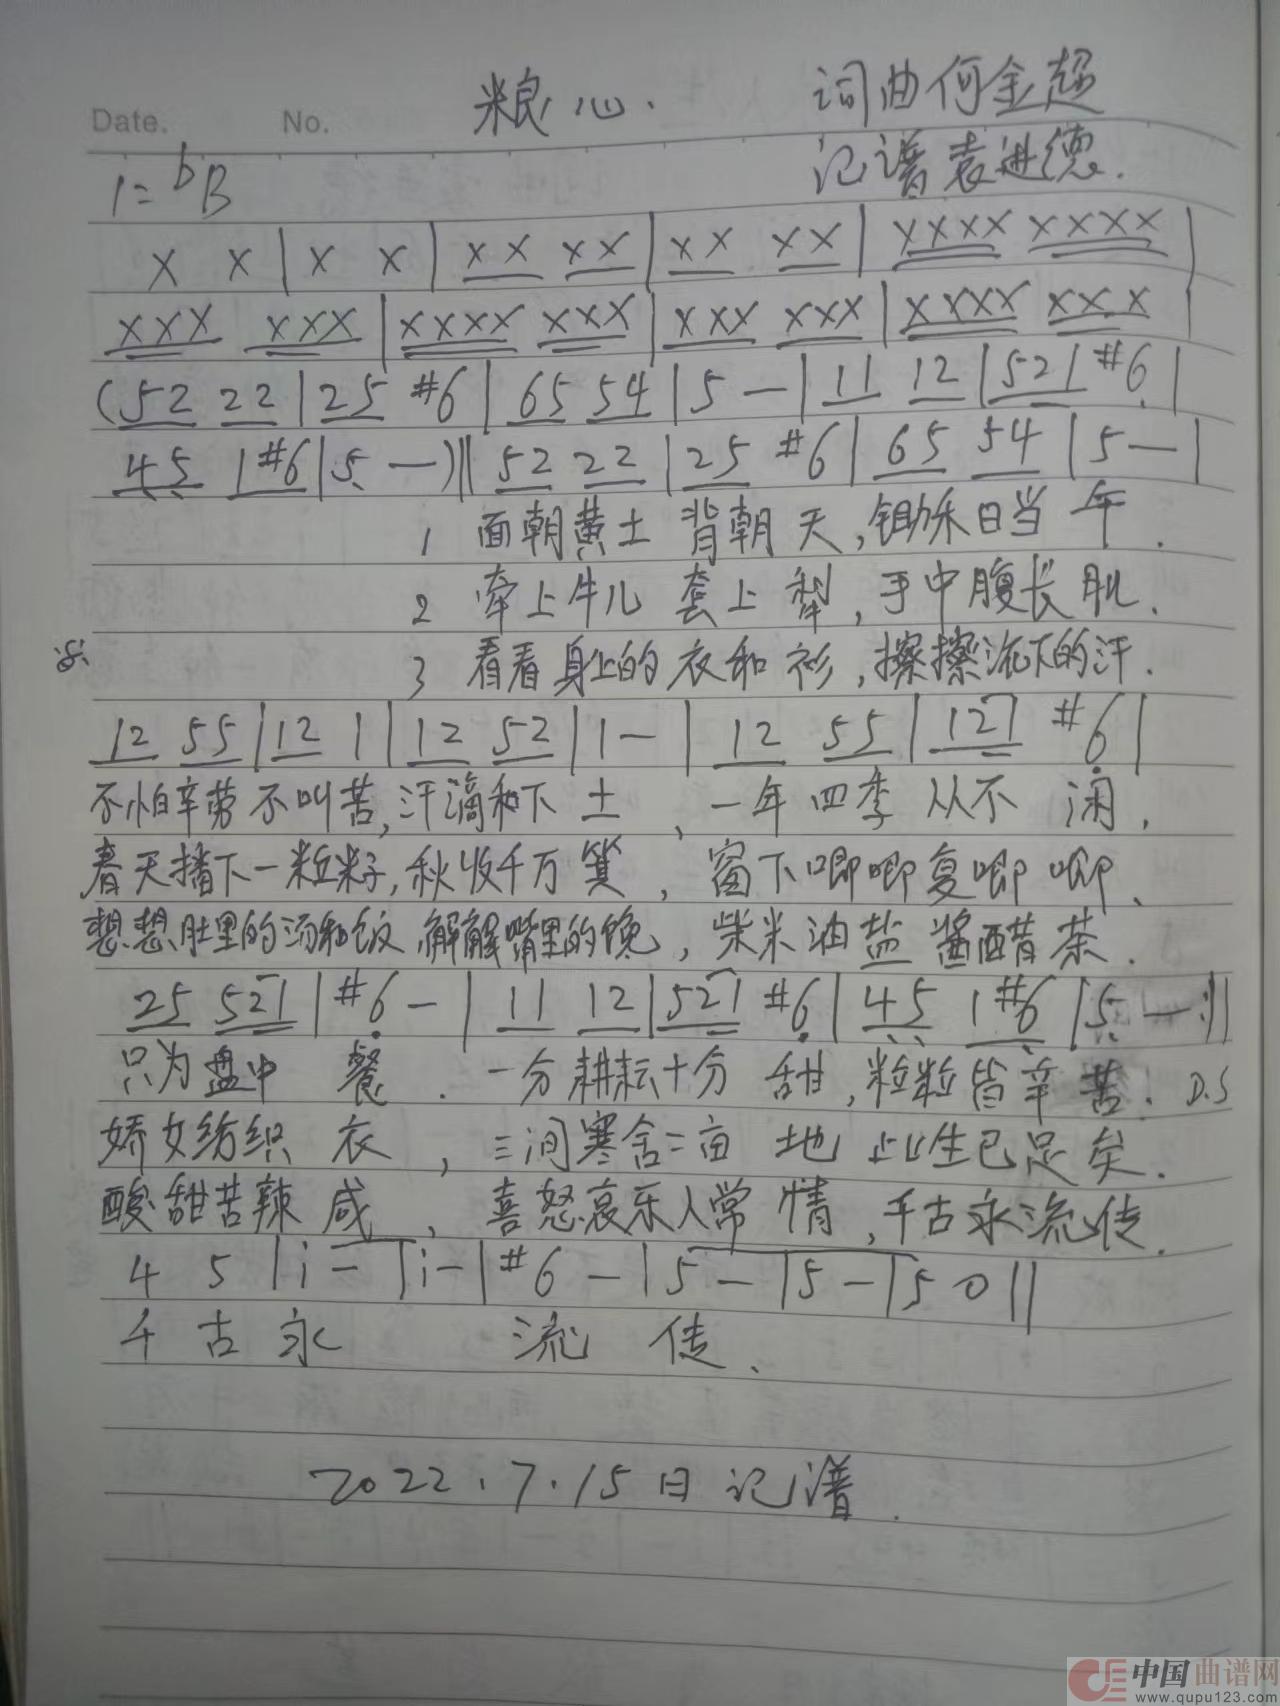 粮心. 词曲何金超
Date. No.
记谱袁进德.
1=bB
X X | X X | XX XX | XX XX | XXXX XXXX |
XXX XXX | XXXX XXX | XXX XXX | XXXX XXX |
(52 22 | 25 #6 | 65 54 | 5 — | 11 12 | 521 #6 |
45 1#6 | 5 —)‖ 52 22 | 25 #6 | 65 54 | 5 — |
1 面朝黄土 背朝天,锄禾日当午.
2 牵上牛儿 套上犁,手中腹长肌.
3 看看身上的衣和衫,擦擦流下的汗.
12 55 | 12 1 | 12 52 | 1 — | 12 55 | 121 #6 |
不怕辛劳不叫苦,汗滴和下土,一年四季从不闲.
春天播下一粒籽,秋收千万箕,窗下唧唧复唧唧、
想想肚里的汤和饭,解解嘴里的馋,柴米油盐酱醋茶.
25 521 | #6 — | 11 12 | 521 #6 | 45 1#6 | 5 — :‖
只为盘中餐.一分耕耘十分甜,粒粒皆辛苦. D.S
娇女纺织衣,三间寒舍二亩地 此生已足矣.
酸甜苦辣咸,喜怒哀乐人常情,千古永流传.
4 5 | i — | i — | #6 — | 5 — | 5 — | 5 0 ‖
千古永 流传、
2022.7.15日记谱.
中国曲谱网
www.qupu123.com